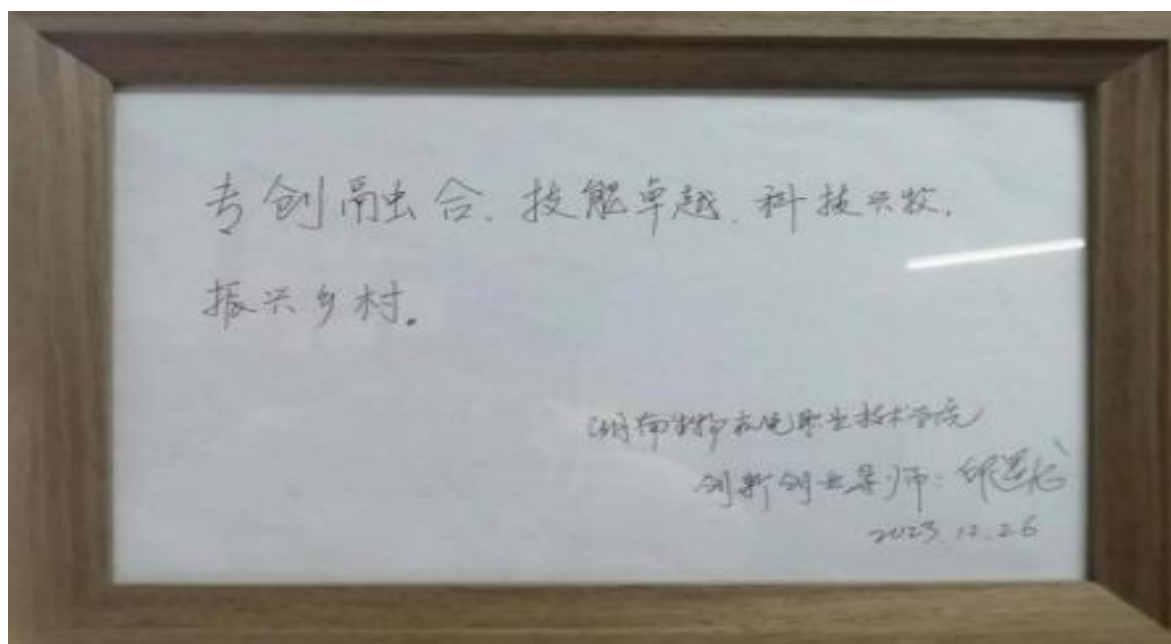 专创融合、技能卓越、科技兴牧,
振兴乡村。
湖南生物机电职业技术学院
创新创业导师:
2023.12.26